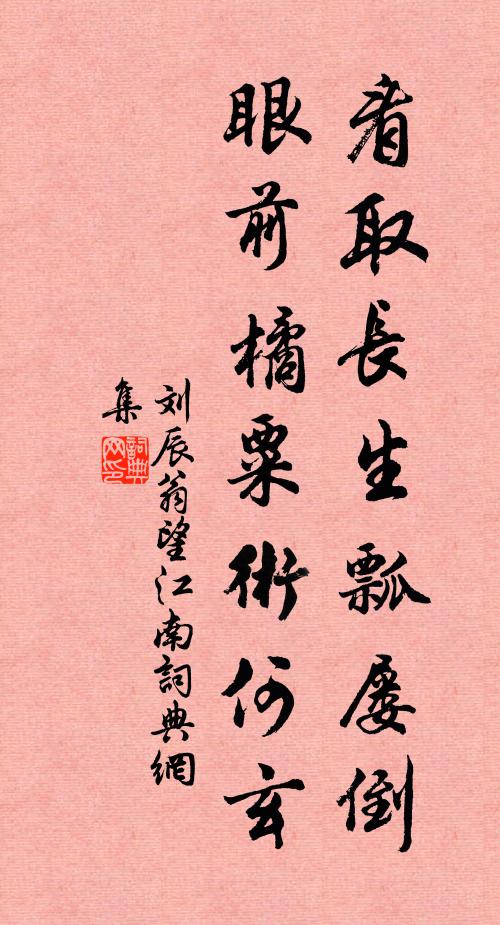 看取長生瓢屡倒
眼前橘粟術何玄
刘辰翁望江南詞典網
集
詞典網印